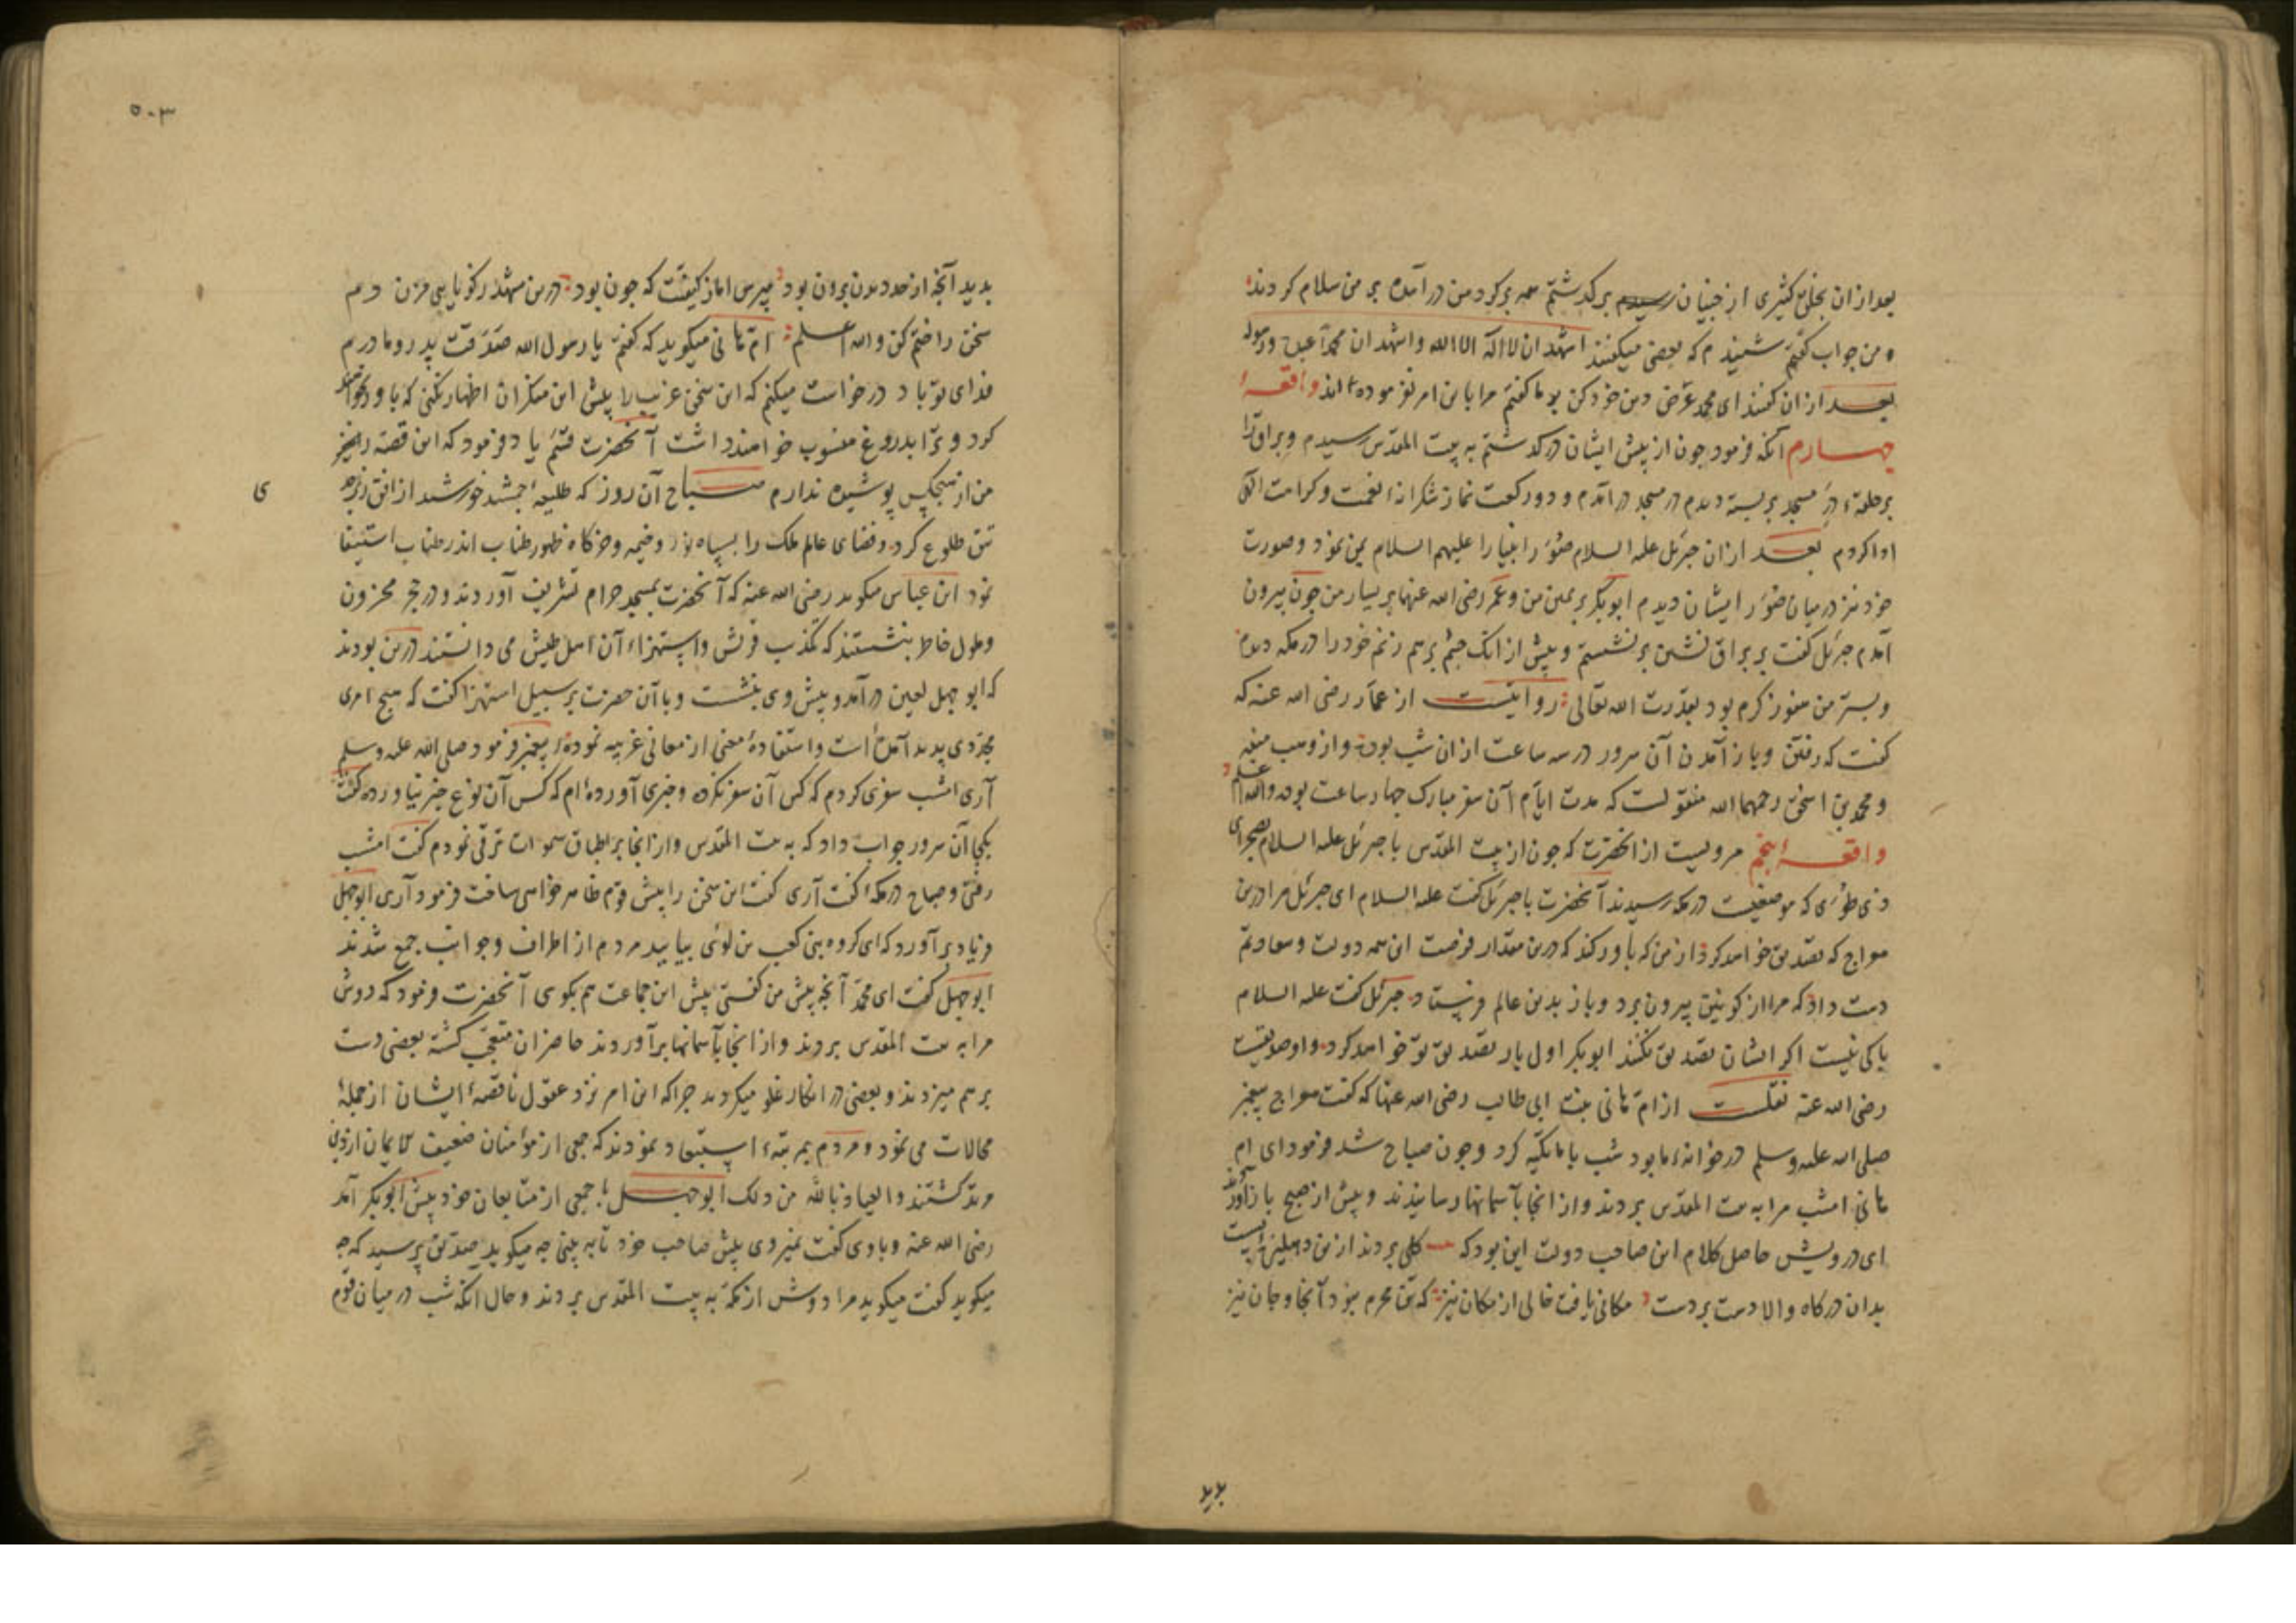 بعد ازان بخلق کثیری از جنیان رسیدم برکذشتم همه برکرد من درآمده بر من سلام کردند
و من جواب کفتم شنیدم که بعضی میکفتند اشهد ان لا اله الا الله و اشهد ان محمدا عبده ورسوله
بعد ازان کفتند ای محمد عرض دین خود کن بر ما کفتم مرا باین امر نفرموده اند واقعهٔ
چهارم آنکه فرمود جون از پیش ایشان درکذشتم به بیت المقدس رسیدم و براق را
بر حلقهٔ در مسجد بر بسته دیدم در مسجد درآمدم و دو رکعت نماز شکرانهٔ نعمت و کرامت الهی
ادا کردم بعد ازان جبرئیل علیه السلام صور انبیا را علیهم السلام بمن نمود و صورت
خود نیز در میان صور ایشان دیدم ابوبکر بر یمین من و عمر رضی الله عنهما بر یسار من جون بیرون
آمدم جبرئیل کفت بر براق نشین بر نشستم و پیش از انک چشم بر هم زنم خود را در مکه دیدم
و بستر من هنوز کرم بود بقدرت الله تعالی روایتست از عمار رضی الله عنه که
کفت که رفتن و باز آمدن آن سرور در سه ساعت ازان شب بود و از وهب منبه
و محمد بن اسحق رحمهما الله منقولست که مدت ایام آن سفر مبارک چهار ساعت بود والله اعلم
واقعهٔ پنجم مرویست از آنحضرت که جون از بیت المقدس با جبرئیل علیه السلام بصحرای
ذی طوی که موضعیست در مکه رسیدند آنحضرت با جبرئیل کفت علیه السلام ای جبرئیل مرا درین
معراج که تصدیق خواهد کرد از من که باور کند که درین مقدار فرصت این همه دولت و سعادتم
دست داد که مرا از کونین بیرون برد و باز بدین عالم فرستاد جبرئیل کفت علیه السلام
باکی نیست اکر ایشان تصدیق نکنند ابوبکر اول بار تصدیق تو خواهد کرد و او صدیقست
رضی الله عنه نقلست از ام هانی بنت ابی طالب رضی الله عنها که کفت معراج پیغمبر
صلی الله علیه وسلم در خانهٔ ما بود شب با ما تکیه کرد و جون صباح شد فرمود ای ام
هانی امشب مرا به بیت المقدس بردند و از انجا بآسمانها رسانیدند و پیش از صبح باز آوردند
ای درویش حاصل کلام این صاحب دولت این بود که کلی بردند ازین دهلیز پست
بدان درکاه والا دست بردست مکانی یافت خالی از مکان نیز که تن محرم نبود آنجا و جان نیز
بدید
۵۰۳
بدید آنچه از حد دیدن برون بود مپرس اما ز کیفیت که جون بود درین مشهد ز کویایی مزن دم
سخن را ختم کن والله اعلم ام هانی میکوید که کفتم یا رسول الله صدقت پدر و مادرم
فدای تو باد درخواست میکنم که این سخن غریب را پیش این منکران اظهار نکنی که باور نخواهند
کرد و ترا بدروغ منسوب خواهند داشت آنحضرت قسم یاد فرمود که این قصه را نیز
من از هیچکس پوشیده ندارم صباح آن روز که طلیعهٔ جمشید خورشید از افق زبرجد
ی
تتق طلوع کرد و فضای عالم ملک را بسپاه نور و خیمه و خرکاه ظهور طناب اندر طناب استیفا
نمود ابن عباس میکوید رضی الله عنه که آنحضرت بمسجد حرام تشریف آوردند و در حجر محزون
و ملول خاطر بنشستند که تکذیب قریش و استهزاء آن اهل طیش می دانستند درین بودند
که ابوجهل لعین درآمد و پیش وی بنشست و با آن حضرت بر سبیل استهزا کفت که هیچ امری
مجددی پدید آمده است و استفادهٔ معنی از معانی غریبه نمودهٔ پیغمبر فرمود صلی الله علیه وسلم
آری امشب سفری کردم که کس آن سفر نکرده و خبری آورده ام که کس آن نوع خبر نیاورده کفت
بکجا آن سرور جواب داد که به بیت المقدس و از انجا بر اطباق سموات ترقی نمودم کفت امشب
رفتی و صباح در مکهٔ کفت آری کفت این سخن را پیش قوم ظاهر خواهی ساخت فرمود آری ابوجهل
فریاد برآورد که ای کروه بنی کعب بن لوی بیایید مردم از اطراف و جوانب جمع شدند
ابوجهل کفت ای محمد آنچه پیش من کفتی پیش این جماعت هم بکوی آنحضرت فرمود که دوش
مرا به بیت المقدس بردند و از انجا بآسمانها برآوردند حاضران متعجب کشته بعضی دست
بر هم میزدند و بعضی در انکار غلو میکردند چرا که این امر نزد عقول ناقصهٔ ایشان از جملهٔ
محالات می نمود و مردم بمرتبهٔ استبعاد نمودند که جمعی از مؤمنان ضعیف الایمان از دین
مرتد کشتند والعیاذ بالله من ذلک ابوجهل با جمعی از متابعان خود پیش ابوبکر آمد
رضی الله عنه و با وی کفت نمیروی پیش صاحب خود تا ببینی چه میکوید صدیق پرسید که چه
میکوید کفت میکوید مرا دوش از مکه به بیت المقدس بردند و حال آنکه شب در میان قوم